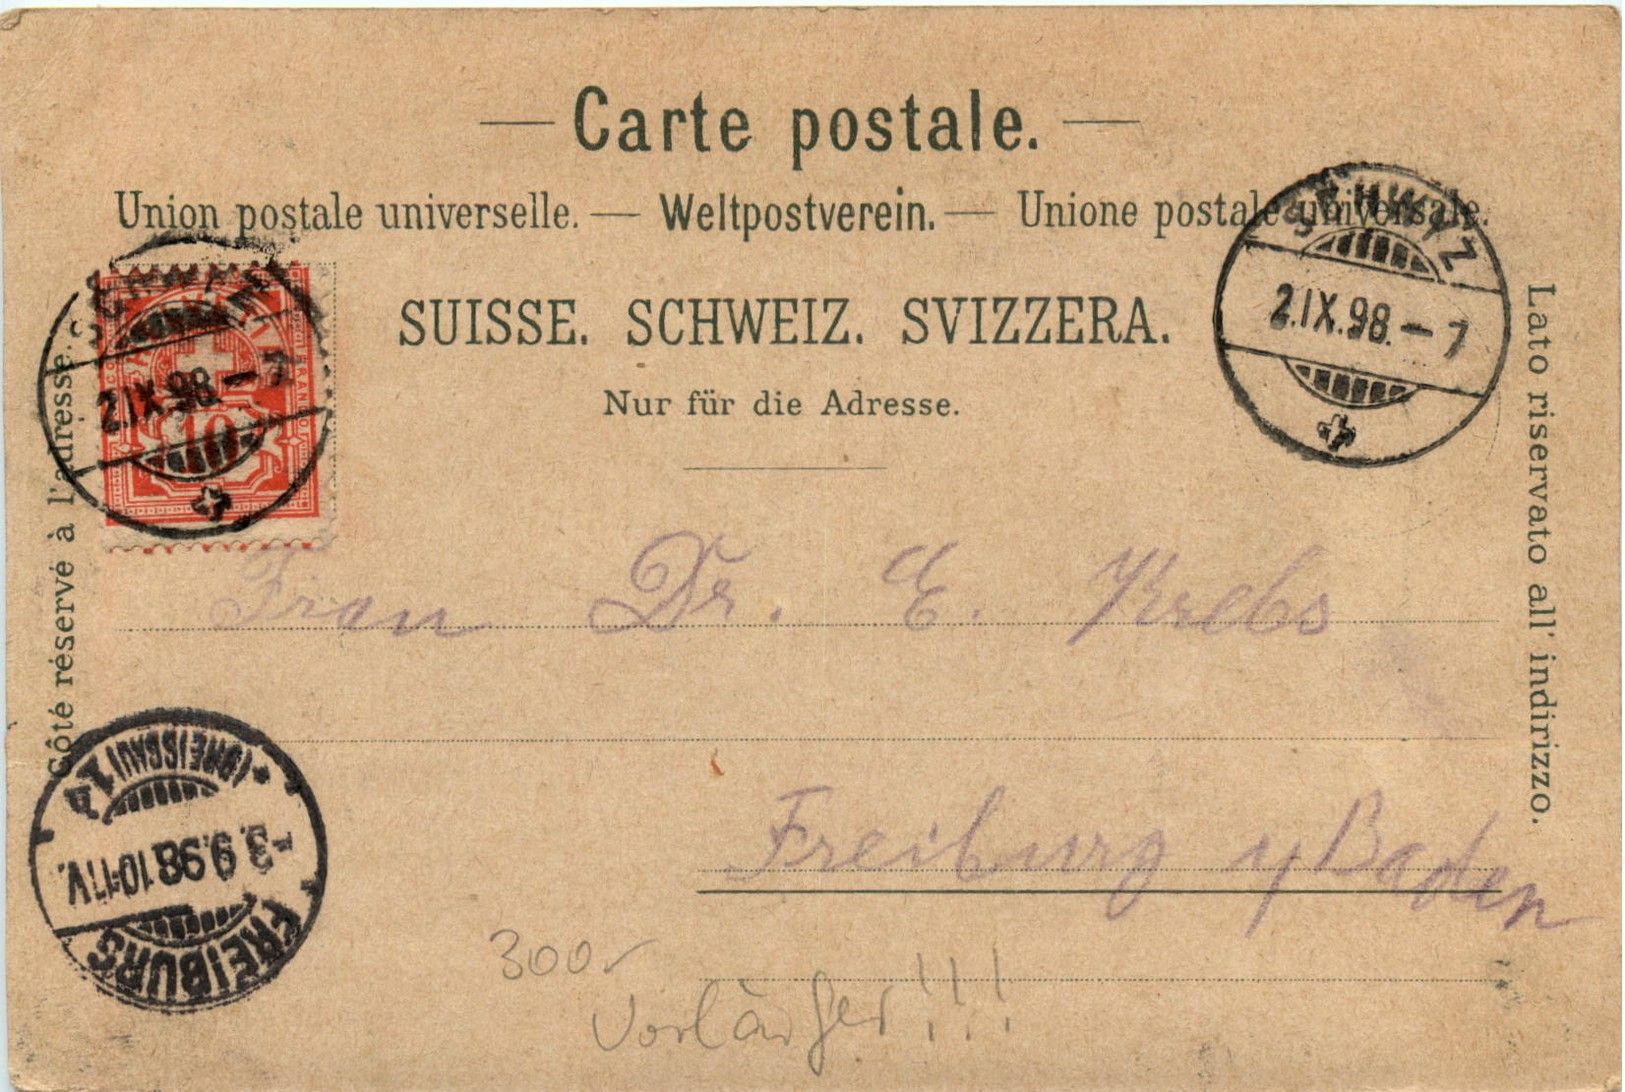 — Carte postale. —
Union postale universelle. — Weltpostverein. — Unione postale universale.
SUISSE. SCHWEIZ. SVIZZERA.
Nur für die Adresse.
côté réservé à l'adresse.
Lato riservato all' indirizzo.
SCHWYZ
2.IX.98.–7
10
SCHWYZ
2.IX.98.–7
Frau Dr. E. Krebs
Freiburg y Baden
FREIBURG
-3.9.98.10-11V.
* (BREISGAU) 1A
300.-
Vorläufer!!!